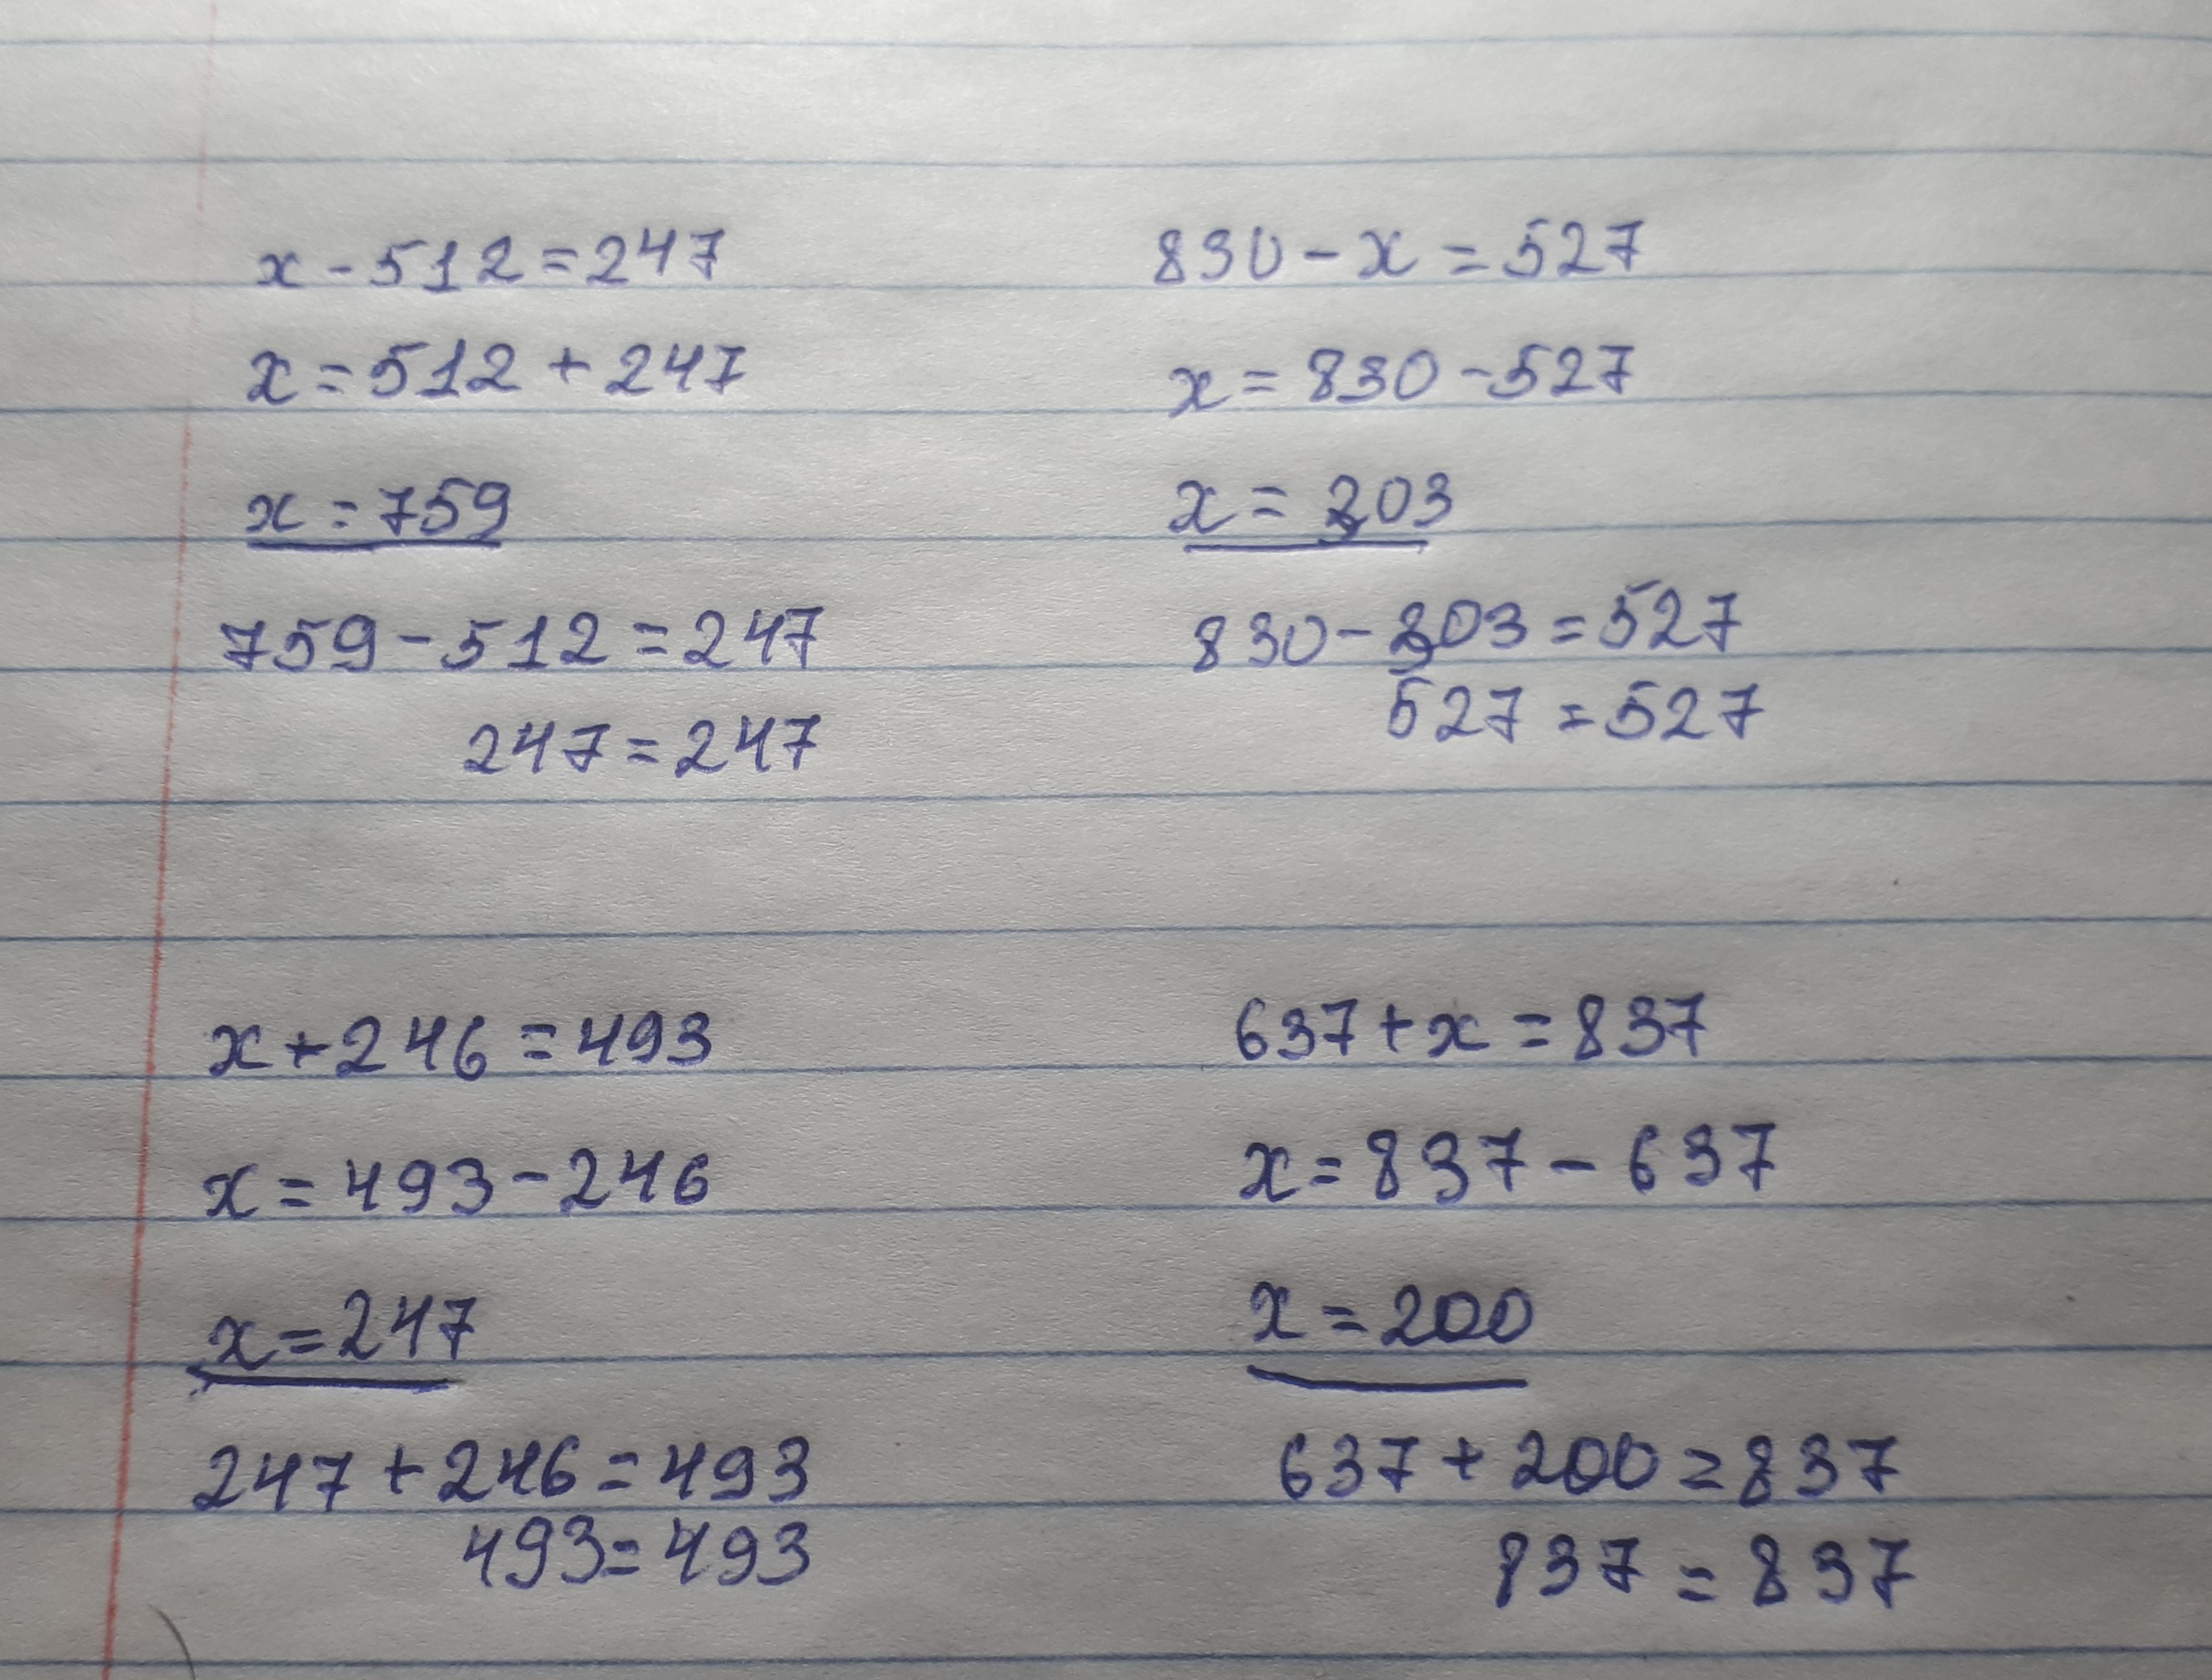 x - 512 = 247
x = 512 + 247
x = 759
759 - 512 = 247
247 = 247
830 - x = 527
x = 830 - 527
x = 303
830 - 303 = 527
527 = 527
x + 246 = 493
x = 493 - 246
x = 247
247 + 246 = 493
493 = 493
637 + x = 837
x = 837 - 637
x = 200
637 + 200 = 837
837 = 837